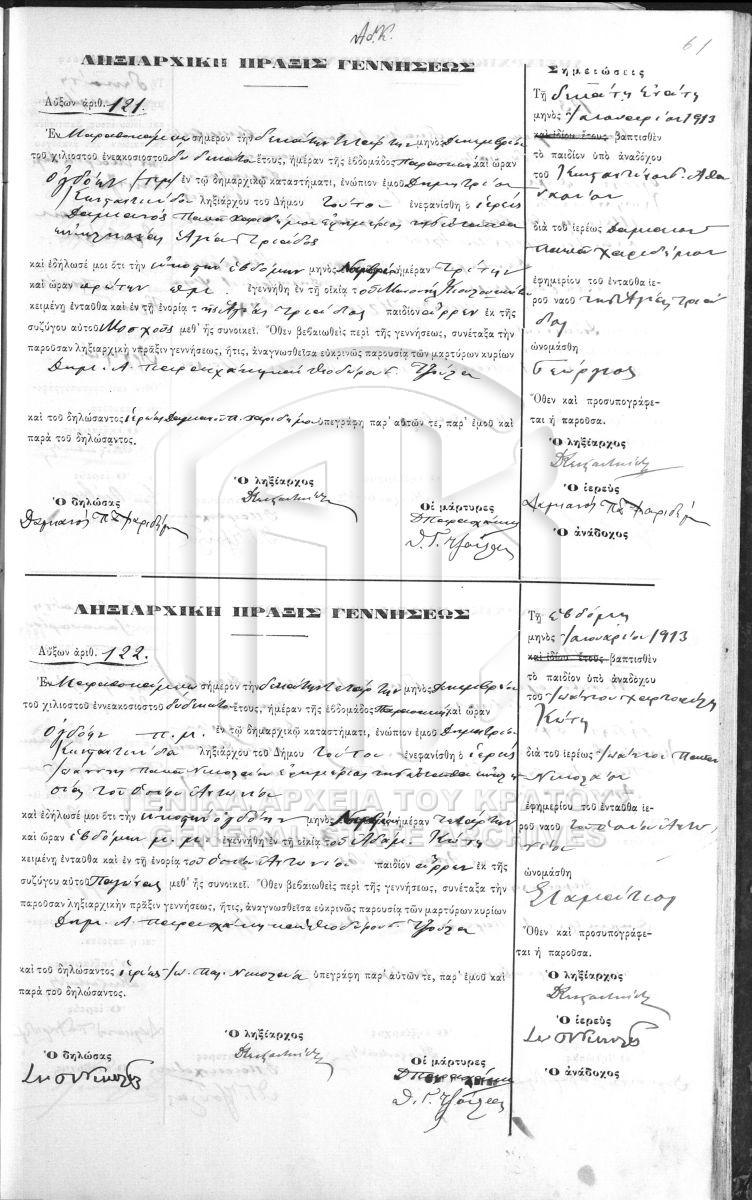 61
ΛΗΞΙΑΡΧΙΚΗ ΠΡΑΞΙΣ ΓΕΝΝΗΣΕΩΣ
Αὔξων ἀριθ. 121.
Ἐν σήμερον τὴν δεκάτην τετάρτην μηνὸς Δεκεμβρίου
τοῦ χιλιοστοῦ ἐνεακοσιοστοῦ δωδεκάτου ἔτους, ἡμέραν τῆς ἑβδομάδος Παρασκευὴν καὶ ὥραν
ὀγδόην π.μ. ἐν τῷ δημαρχικῷ καταστήματι, ἐνώπιον ἐμοῦ Δημητρίου
Κωσταντινίδου ληξιάρχου τοῦ Δήμου τούτου ἐνεφανίσθη ὁ ἱερεὺς
Δαμιανὸς Παπᾶ Χαριδήμου ἐφημέριος τῆς ἐνταῦθα
ἐκκλησίας Ἁγίας Τριάδος
καὶ ἐδήλωσέ μοι ὅτι τὴν εἰκοστὴν ἑβδόμην μηνὸς Νοεμβρίου ἡμέραν τρίτην
καὶ ὥραν πρώτην π.μ. ἐγεννήθη ἐν τῇ οἰκίᾳ τοῦ
κειμένῃ ἐνταῦθα καὶ ἐν τῇ ἐνορίᾳ τῆς Ἁγίας Τριάδος παιδίον ἄρρεν ἐκ τῆς
συζύγου αὐτοῦ Μοσχοῦς μεθ' ἧς συνοικεῖ. Ὅθεν βεβαιωθεὶς περὶ τῆς γεννήσεως, συνέταξα τὴν
παροῦσαν ληξιαρχικὴν πρᾶξιν γεννήσεως, ἥτις, ἀναγνωσθεῖσα εὐκρινῶς παρουσίᾳ τῶν μαρτύρων κυρίων
Δημ. Α. καὶ Θεοδώρου Γ.
καὶ τοῦ δηλώσαντος ἱερέως Δαμιανοῦ Π. Χαριδήμου ὑπεγράφη παρ' αὐτῶν τε, παρ' ἐμοῦ καὶ
παρὰ τοῦ δηλώσαντος.
Ὁ ληξίαρχος
Ὁ δηλώσας
Οἱ μάρτυρες
Δαμιανὸς Πα Χαριδήμου
Σημειώσεις
Τῇ δεκάτῃ ἐνάτῃ
μηνὸς Ἰανουαρίου 1913
καὶ ἰδίου ἔτους βαπτισθὲν
τὸ παιδίον ὑπὸ ἀναδόχου
τοῦ
διὰ τοῦ ἱερέως Δαμιανοῦ
Παπᾶ Χαριδήμου
ἐφημερίου τοῦ ἐνταῦθα ἱε-
ροῦ ναοῦ τῆς Ἁγίας Τριά
δος
ὠνομάσθη
Γεώργιος
Ὅθεν καὶ προσυπογράφε-
ται ἡ παροῦσα.
Ὁ ληξίαρχος
Ὁ ἱερεὺς
Δαμιανὸς Πα Χαριδήμου
Ὁ ἀνάδοχος
ΛΗΞΙΑΡΧΙΚΗ ΠΡΑΞΙΣ ΓΕΝΝΗΣΕΩΣ
Αὔξων ἀριθ. 122.
Ἐν σήμερον τὴν δεκάτην τετάρτην μηνὸς Δεκεμβρίου
τοῦ χιλιοστοῦ ἐννεακοσιοστοῦ δωδεκάτου ἔτους, ἡμέραν τῆς ἑβδομάδος Παρασκευὴν καὶ ὥραν
ὀγδόην π.μ. ἐν τῷ δημαρχικῷ καταστήματι, ἐνώπιον ἐμοῦ Δημητρίου
Κωσταντινίδα ληξιάρχου τοῦ Δήμου τούτου ἐνεφανίσθη ὁ ἱερεὺς
Ἰωάννης Παπᾶ Νικολάου ἐφημέριος τῆς ἐνταῦθα ἐκκλη
σίας τοῦ Ὁσίου Ἀντωνίου
καὶ ἐδήλωσέ μοι ὅτι τὴν εἰκοστὴν ὀγδόην μηνὸς Νοεμβρίου ἡμέραν τετάρτην
καὶ ὥραν ἑβδόμην μ.μ. ἐγεννήθη ἐν τῇ οἰκίᾳ τοῦ Ἀδαμ. Κώτη
κειμένῃ ἐνταῦθα καὶ ἐν τῇ ἐνορίᾳ τοῦ Ὁσίου Ἀντωνίου παιδίον ἄρρεν ἐκ τῆς
συζύγου αὐτοῦ μεθ' ἧς συνοικεῖ. Ὅθεν βεβαιωθεὶς περὶ τῆς γεννήσεως, συνέταξα τὴν
παροῦσαν ληξιαρχικὴν πρᾶξιν γεννήσεως, ἥτις, ἀναγνωσθεῖσα εὐκρινῶς παρουσίᾳ τῶν μαρτύρων κυρίων
Δημ. Α. καὶ Θεοδώρου Γ.
καὶ τοῦ δηλώσαντος ἱερέως Ἰω. Παπ. Νικολάου ὑπεγράφη παρ' αὐτῶν τε, παρ' ἐμοῦ καὶ
παρὰ τοῦ δηλώσαντος.
Ὁ ληξίαρχος
Ὁ δηλώσας
Οἱ μάρτυρες
Τῇ ἑβδόμῃ
μηνὸς Ἰανουαρίου 1913
καὶ ἰδίου ἔτους βαπτισθὲν
τὸ παιδίον ὑπὸ ἀναδόχου
τοῦ Ἰωάννου
Κώτη
διὰ τοῦ ἱερέως Ἰωάννου Παπᾶ
Νικολάου
ἐφημερίου τοῦ ἐνταῦθα ἱε-
ροῦ ναοῦ τοῦ Ὁσίου Ἀντω
νίου
ὠνομάσθη
Σταμάτιος
Ὅθεν καὶ προσυπογράφε-
ται ἡ παροῦσα.
Ὁ ληξίαρχος
Ὁ ἱερεὺς
Ὁ ἀνάδοχος
ΓΕΝΙΚΑ ΑΡΧΕΙΑ ΤΟΥ ΚΡΑΤΟΥΣ
GENERAL STATE ARCHIVES